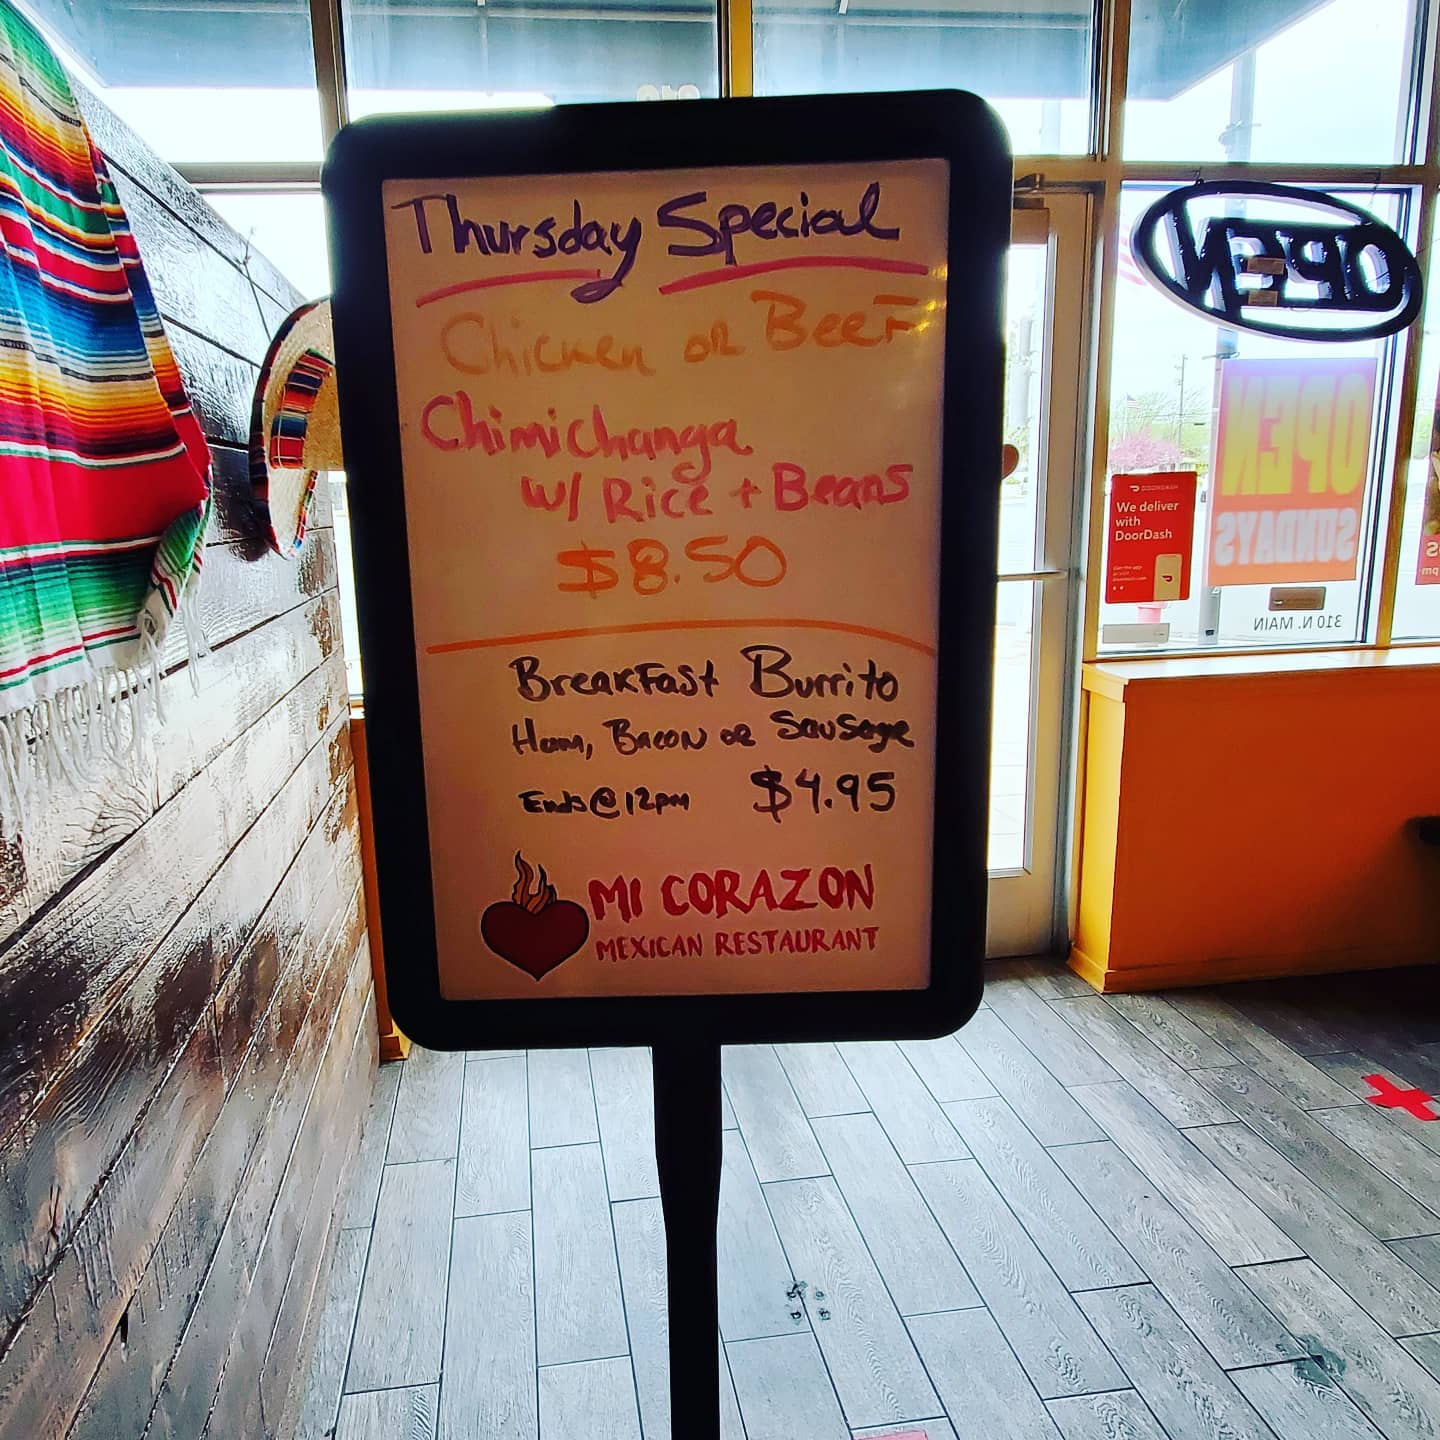 Thursday Special
Chicken or Beef
Chimichanga
w/ Rice + Beans
$8.50
Breakfast Burrito
Ham, Bacon or Sausage
Ends @ 12pm $4.95
MI CORAZON
MEXICAN RESTAURANT
OPEN
DOORDASH
We deliver
with
DoorDash
OPEN
SUNDAYS
310 N. MAIN